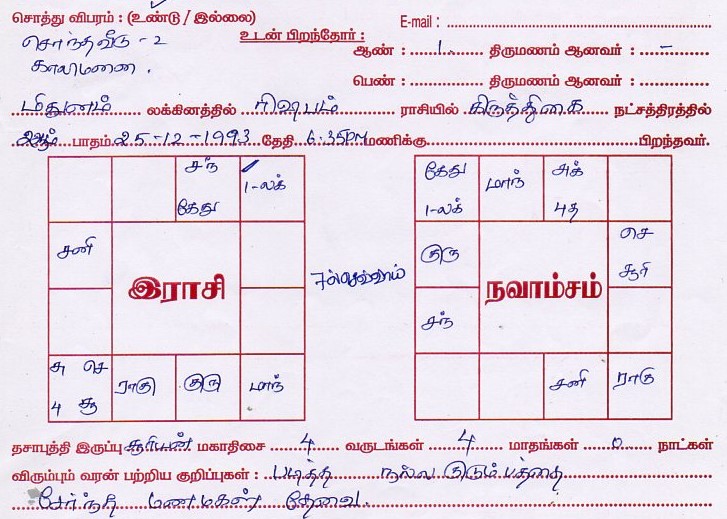 சொத்து விபரம் : (உண்டு / இல்லை)
E-mail :
சொந்தவீடு - 2
காலிமனை.
உடன் பிறந்தோர் :
ஆண் : 1 திருமணம் ஆனவர் : -
பெண் : திருமணம் ஆனவர் :
மிதுனம் லக்கினத்தில் ரிஷபம் ராசியில் கிருத்திகை நட்சத்திரத்தில்
2ஆம் பாதம் 25-12-1993 தேதி 6.35PM மணிக்கு பிறந்தவர்.
சந் கேது
1-லக்
சனி
இராசி
சு செ
4 சூ
ராகு
குரு
மாந்
7ல்செவ்வாய்
கேது
1-லக்
மாந்
சுக்
4
குரு
செ
சூரி
நவாம்சம்
சந்
சனி
ராகு
தசாபுத்தி இருப்பு சூரியன் மகாதிசை 4 வருடங்கள் 4 மாதங்கள் 0 நாட்கள்
விரும்பும் வரன் பற்றிய குறிப்புகள் : படித்த நல்ல குடும்பத்தை
சேர்ந்த மணமகன் தேவை.